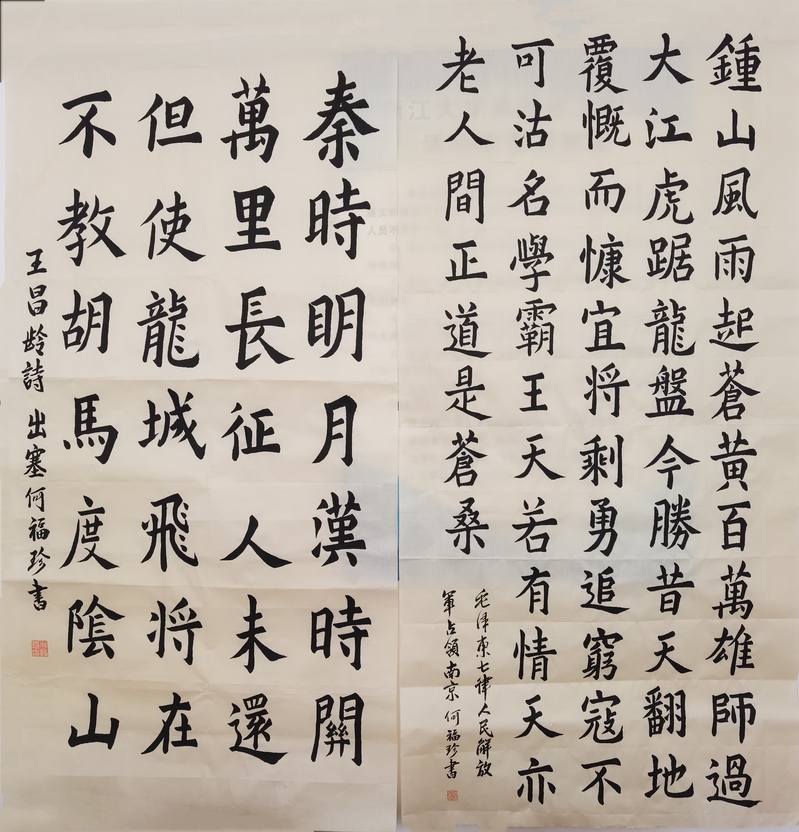 鍾山風雨起蒼黄百萬雄師過
大江虎踞龍盤今勝昔天翻地
覆慨而慷宜将剩勇追窮寇不
可沽名學霸王天若有情天亦
老人間正道是蒼桑
毛泽東七律人民解放
軍占領南京何福珍書
秦時眀月漢時關
萬里長征人未還
但使龍城飛将在
不教胡馬度陰山
王昌齡詩 出塞何福珍書